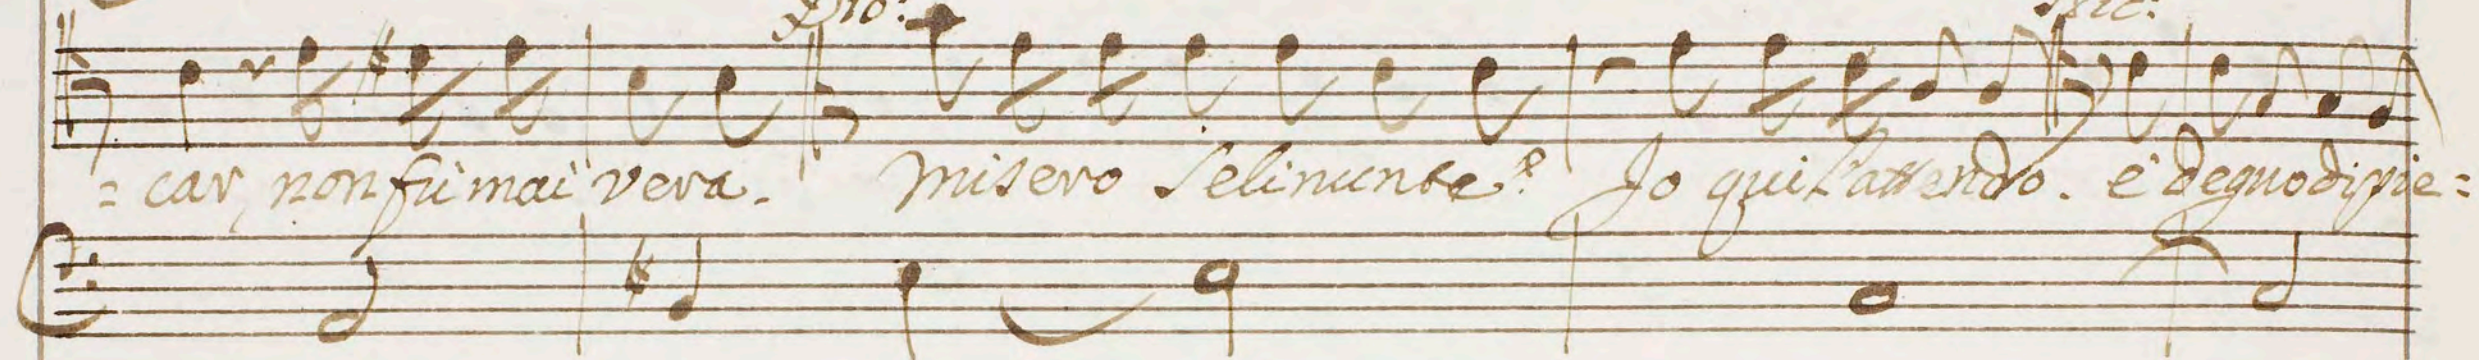 =car, non fù mai vera. misero Selinunte? Io qui l'attendo. è degno di pie=